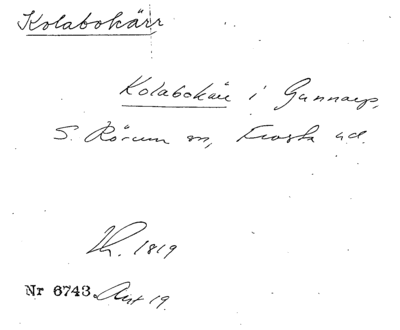 Kolabokärr
Kolabokärr i Gunnarp,
S. Rörum sn, Frosta hd.
1819
Nr 6743 Akt 19.